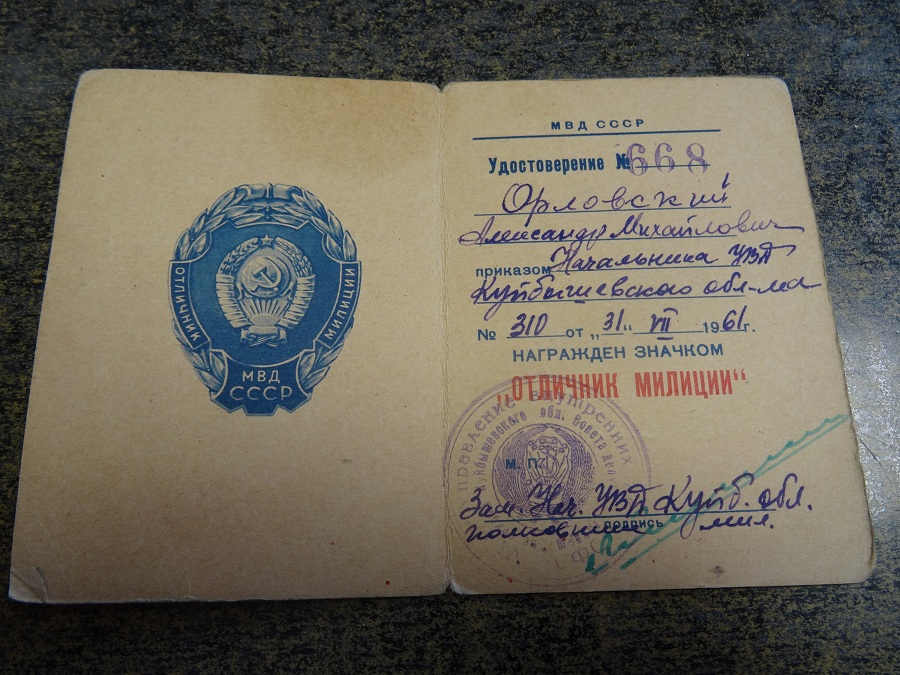 ОТЛИЧНИК МИЛИЦИИ
МВД
СССР
МВД СССР
Удостоверение № 668
Орловский
Александр Михайлович
приказом Начальника УВД
Куйбышевского обл-ма
№ 310 от „31“ VII 1961г.
НАГРАЖДЕН ЗНАЧКОМ
„ОТЛИЧНИК МИЛИЦИИ“
правление внутренних
обл. Совета деп
М. П.
Зам. Нач. УВД Куйб. обл.
полковник мил.
подпись